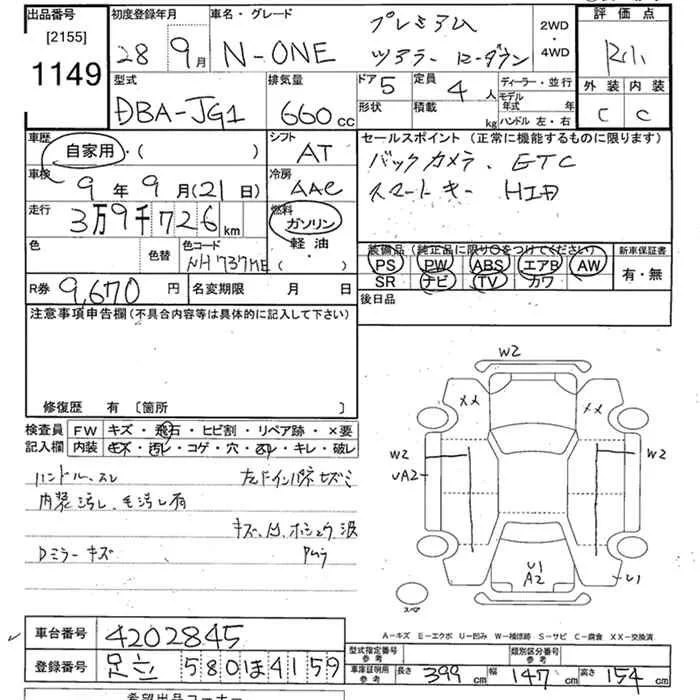 出品番号 初度登録年月 車名・グレード 評価点
[2155]
1149
28 9月 N-ONE
プレミアム
ツアラー ローダウン
2WD
・
4WD
外装 内装
C C
型式 排気量 ドア 5 定員 4人 ディーラー・並行
DBA-JG1 660cc 形状 積載 kg
モデル年式 年
ハンドル 左・右
車歴 自家用・( ) シフト AT
セールスポイント(正常に機能するものに限ります)
バックカメラ、ETC
スマートキー HID
車検 9年9月(21日) 冷房 AAC
走行 3万9千726km 燃料 ガソリン
軽油
・
( )
色 色替 色コード NH737ME
装備品(純正品に限り○をつけてください) 新車保証書
PS PW ABS エアB AW 有・無
SR ナビ TV カワ
R券 9,670円 名変期限 月 日
後日品
注意事項申告欄(不具合内容等は具体的に記入して下さい)
修復歴 有 〔箇所 〕
検査員記入欄
FW キズ・飛石・ヒビ割・リペア跡・×要
内装 キズ・汚レ・コゲ・穴・スレ・キレ・破レ
ハンドル、スレ
内装汚レ、毛汚レ有
Dミラーキズ
W2
XX XX
W2 W2
UA2
U1
A2
U1
スペア
A-キズ E-エクボ U-凹み W-補修跡 S-サビ C-腐食 XX-交換済
車台番号 4202845
登録番号 足立 580 ほ 4159
型式指定番号 参考 類別区分番号 参考
車庫証明用 参考 長さ 399cm 幅 147cm 高さ 154cm
希望出品コーナー